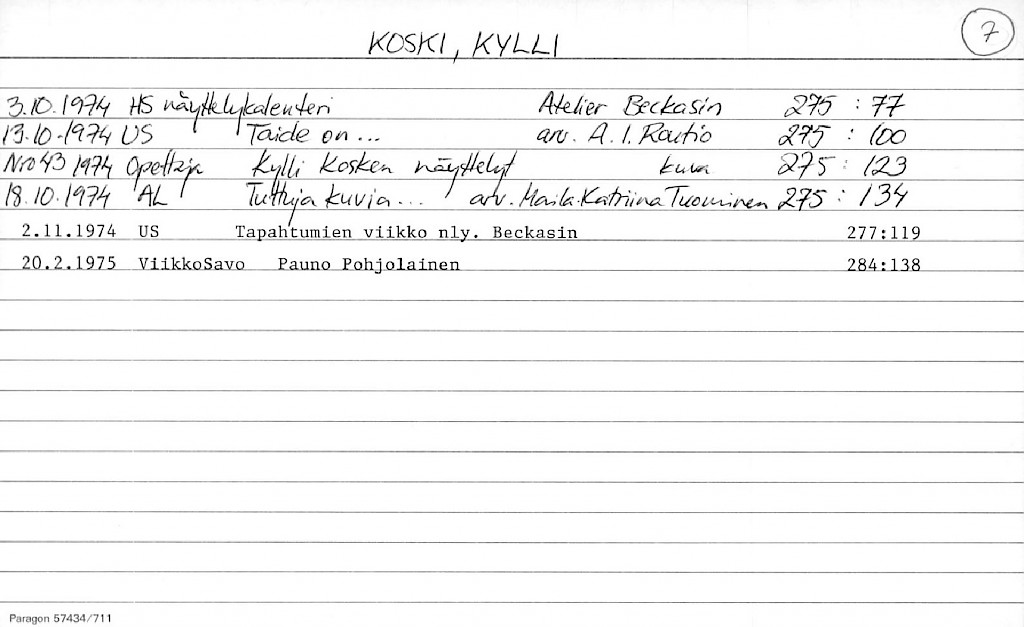 KOSKI, KYLLI
7
3.10.1974 HS näyttelykalenteri Atelier Beckasin 275 : 77
13.10.1974 US Taide on... arv. A. I. Routio 275 : 100
Nro 43 1974 Opettaja Kylli Kosken näyttelyt kuva 275 : 123
18.10.1974 AL Tuttuja kuvia... arv. Maila-Katriina Tuominen 275 : 134
2.11.1974 US Tapahtumien viikko nly. Beckasin 277:119
20.2.1975 ViikkoSavo Pauno Pohjolainen 284:138
Paragon 57434/711